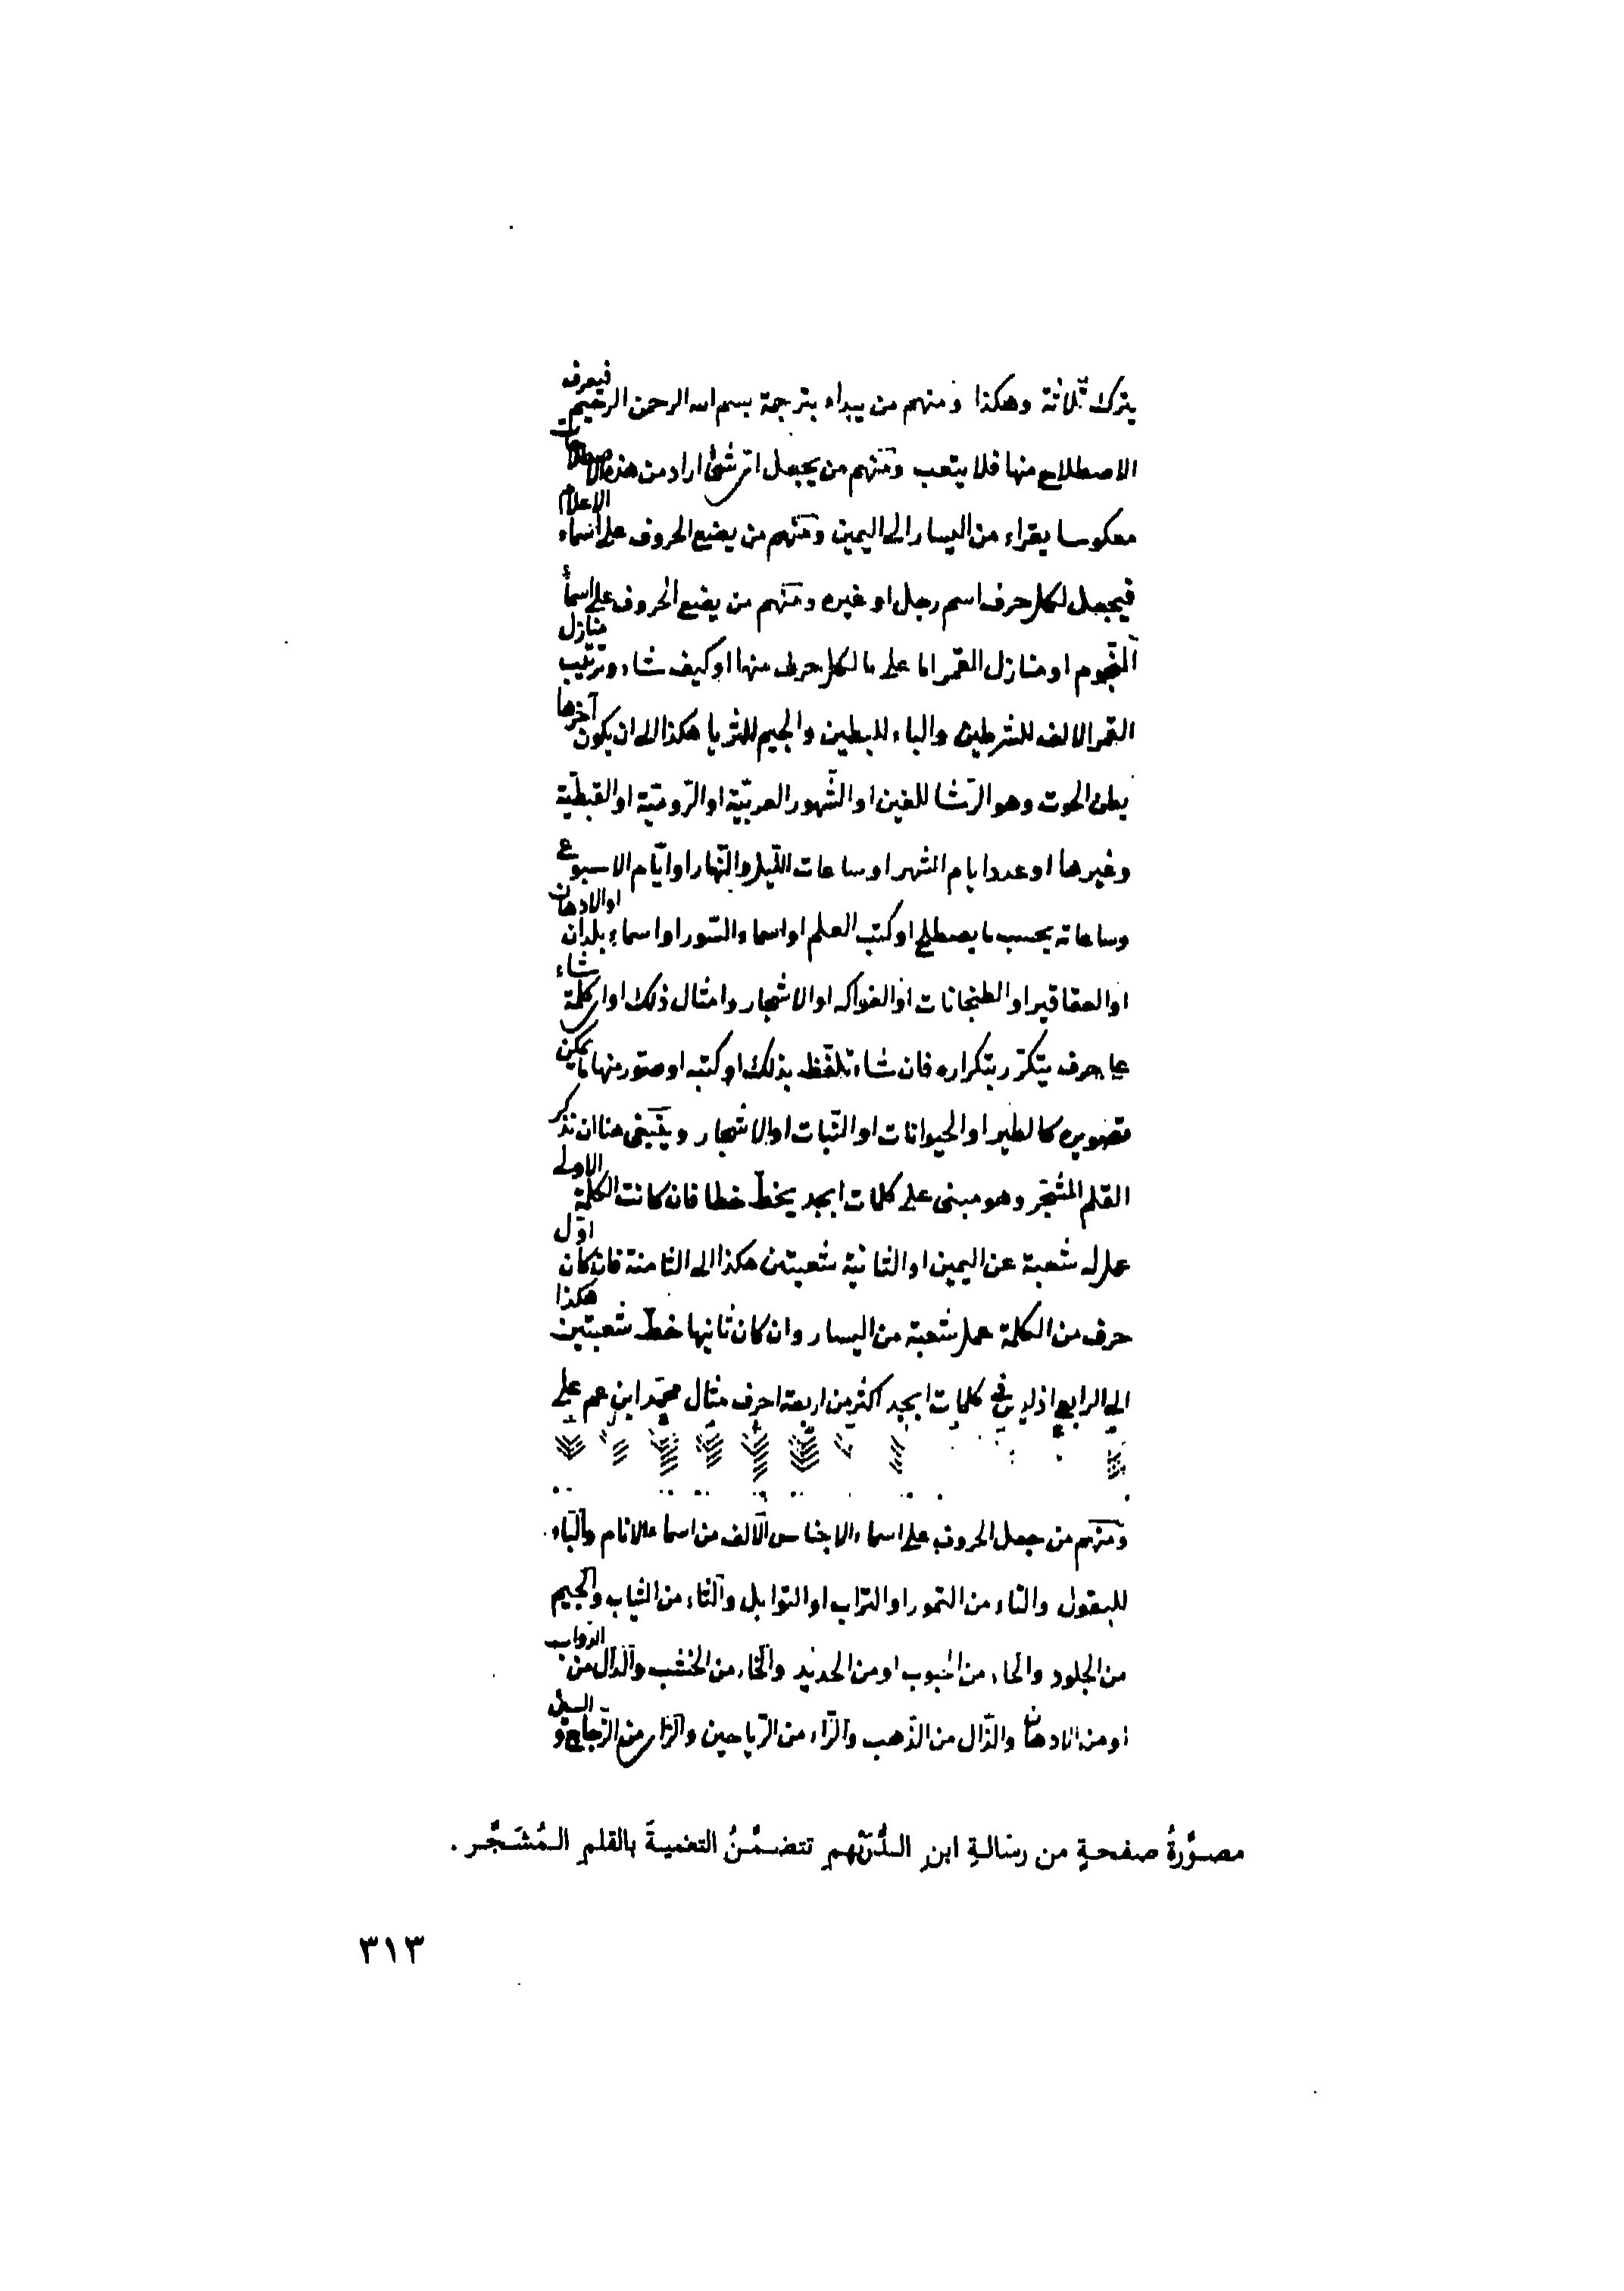 يترك ثلاثة وهكذا ومنهم من يبداء بترجمة بسم الله الرحمن الرحيم فيعرف
الاصطلاح منها فلا يتعب ومنهم من يجعل اي شئ اراد من هذه الاصطلاحات
معكوسا يقراء من اليسار الى اليمين ومنهم من يضع الحروف على اسماء الاعلام
فيجعل لكل حرف اسم رجل او غيره ومنهم من يضع الحروف على اسماء
النجوم او منازل القمر اما على ما لكل حرف منها او كيف شاء وترتيب منازل
القمر الالف للشرطين والباء للبطين والجيم للثريا هكذا الى ان يكون آخرها
بطن الحوت وهو الرشا للغين او الشهور العربيّة او الرّوميّة او القبطيّة
وغيرها او عدد ايام الشهر او ساعات اللّيل والنّهار او ايّام الاسبوع
وساعاته بحسب ما يصطلح او كتب العلم او اسماء السّور او اسماء بلدان او الادهان
او العقاقير او الطنجانات او الفواكه او الاشجار وامثال ذلك او اي كلمة شاء
حرف يتكرّر بتكراره فان شاء تلفّظ بذلك او كتبه او صوّر منها ما يمكن
تصويره كالطير او الحيوانات او النّبات او الاشجار وينبغي هنا ان نذكر
القلم المشجّر وهو مبنى على كلمات ابجد يخطّ خطا فان كانت الكلمة الاولى
عمل له شعبة عن اليمين او الثانية شعبتين هكذا الى الثامنة فان كان اوّل
حرف من الكلمة عمل شعبة من اليسار وان كان ثانيها خطّ شعبتين هكذا
الى الرابع اذ ليس في كلمات ابجد اكثر من اربعة احرف مثال محمّد ابن عم على
ومنهم من جعل الحروف على اسماء الاجناس الالف من اسماء الانام والباء
للبقول والتاء من التمور او التراب او التوابل والثاء من الثياب والجيم
من الجلود والحاء من الحبوب او من الحديد والخاء من الخشب والدّال من الدّواب
او من الادهان والذّال من الذّهب والرّاء من الرّياحين والزاي من الزّجاج و
مصوَّرةُ صفحةٍ من رسالةِ ابنِ الدُّنَيْهم تتضمَّنُ التعميةَ بالقلمِ المُشَجَّر .
٣١٣